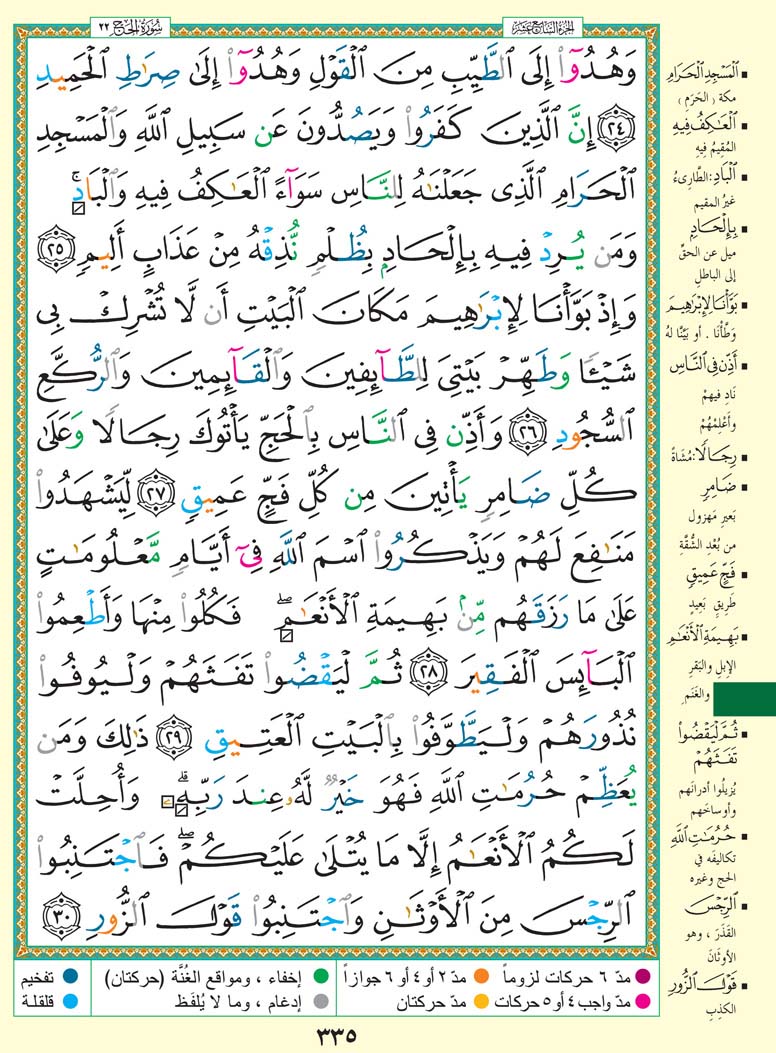 الجزء السابع عشر
سُورَةُ الْحَجِّ ٢٢
وَهُدُوٓا۟ إِلَى ٱلطَّيِّبِ مِنَ ٱلْقَوْلِ وَهُدُوٓا۟ إِلَىٰ صِرَٰطِ ٱلْحَمِيدِ
٢٤ إِنَّ ٱلَّذِينَ كَفَرُوا۟ وَيَصُدُّونَ عَن سَبِيلِ ٱللَّهِ وَٱلْمَسْجِدِ
ٱلْحَرَامِ ٱلَّذِى جَعَلْنَٰهُ لِلنَّاسِ سَوَآءً ٱلْعَٰكِفُ فِيهِ وَٱلْبَادِ ۚ
وَمَن يُرِدْ فِيهِ بِإِلْحَادٍۭ بِظُلْمٍ نُّذِقْهُ مِنْ عَذَابٍ أَلِيمٍ ٢٥
وَإِذْ بَوَّأْنَا لِإِبْرَٰهِيمَ مَكَانَ ٱلْبَيْتِ أَن لَّا تُشْرِكْ بِى
شَيْـًٔا وَطَهِّرْ بَيْتِىَ لِلطَّآئِفِينَ وَٱلْقَآئِمِينَ وَٱلرُّكَّعِ
ٱلسُّجُودِ ٢٦ وَأَذِّن فِى ٱلنَّاسِ بِٱلْحَجِّ يَأْتُوكَ رِجَالًا وَعَلَىٰ
كُلِّ ضَامِرٍ يَأْتِينَ مِن كُلِّ فَجٍّ عَمِيقٍ ٢٧ لِّيَشْهَدُوا۟
مَنَٰفِعَ لَهُمْ وَيَذْكُرُوا۟ ٱسْمَ ٱللَّهِ فِىٓ أَيَّامٍ مَّعْلُومَٰتٍ
عَلَىٰ مَا رَزَقَهُم مِّنۢ بَهِيمَةِ ٱلْأَنْعَٰمِ ۖ فَكُلُوا۟ مِنْهَا وَأَطْعِمُوا۟
ٱلْبَآئِسَ ٱلْفَقِيرَ ٢٨ ثُمَّ لْيَقْضُوا۟ تَفَثَهُمْ وَلْيُوفُوا۟
نُذُورَهُمْ وَلْيَطَّوَّفُوا۟ بِٱلْبَيْتِ ٱلْعَتِيقِ ٢٩ ذَٰلِكَ وَمَن
يُعَظِّمْ حُرُمَٰتِ ٱللَّهِ فَهُوَ خَيْرٌ لَّهُۥ عِندَ رَبِّهِۦ ۗ وَأُحِلَّتْ
لَكُمُ ٱلْأَنْعَٰمُ إِلَّا مَا يُتْلَىٰ عَلَيْكُمْ ۖ فَٱجْتَنِبُوا۟
ٱلرِّجْسَ مِنَ ٱلْأَوْثَٰنِ وَٱجْتَنِبُوا۟ قَوْلَ ٱلزُّورِ ٣٠
▪ ٱلْمَسْجِدِ ٱلْحَرَامِ
مكة (الحَرَم)
▪ ٱلْعَٰكِفُ فِيهِ
المُقيمُ فيهِ
▪ ٱلْبَادِ: الطَّارِىءُ
غيرُ المقيم
▪ بِإِلْحَادٍ
ميل عن الحقِّ
إلى الباطلِ
▪ بَوَّأْنَا لِإِبْرَٰهِيمَ
وَطَّأْنَا. أو بَيَّنَّا لهُ
▪ أَذِّن فِى ٱلنَّاسِ
نَادِ فيهمْ
وأَعْلِمْهُمْ
▪ رِجَالًا: مُشَاةً
▪ ضَامِرٍ
بَعيرٍ مَهزول
من بُعْدِ الشُّقَّةِ
▪ فَجٍّ عَمِيقٍ
طَريقٍ بَعيدٍ
▪ بَهِيمَةِ ٱلْأَنْعَٰمِ
الإبلِ والبَقرِ
والغَنَمِ
▪ ثُمَّ لْيَقْضُوا۟
تَفَثَهُمْ
يُزيلُوا أدرانَهم
وأوساخَهم
▪ حُرُمَٰتِ ٱللَّهِ
تكاليفَه في
الحج وغيره
▪ ٱلرِّجْسَ
القَذَرَ، وهو
الأوثَان
▪ قَوْلَ ٱلزُّورِ
الكذِبِ
مدّ ٦ حركات لزوماً
مدّ ٢ أو ٤ أو ٦ جوازاً
مدّ واجب ٤ أو ٥ حركات
مدّ حركتان
إخفاء، ومواقع الغُنَّة (حركتان)
إدغام، وما لا يُلفَظ
تفخيم
قلقلة
٣٣٥